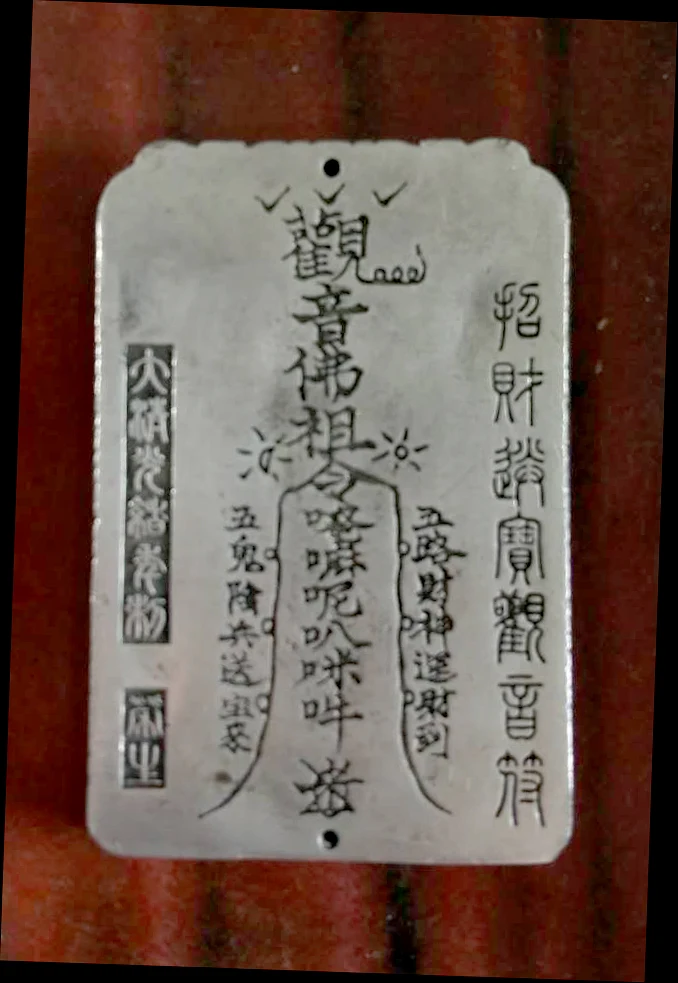 招財進寶觀音符
五路財神送財到
觀音佛祖
令
唵嘛呢叭咪吽
五鬼陰兵送宝來
大清光緒年制